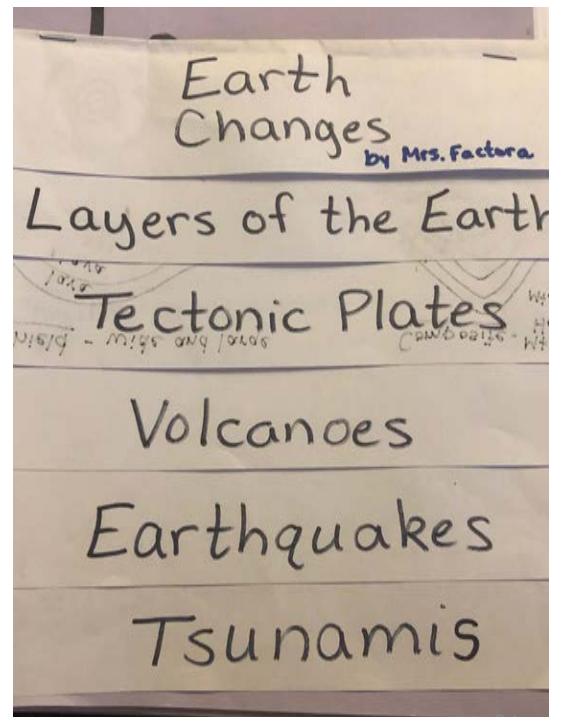 Earth
Changes
by Mrs. Factora
Layers of the Earth
Tectonic Plates
Volcanoes
Earthquakes
Tsunamis